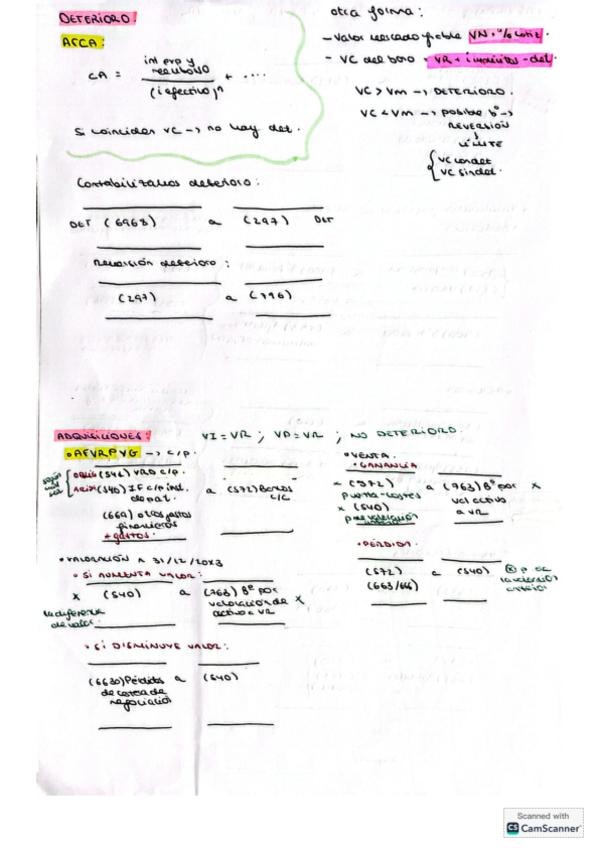 DETERIORO:
AFCA:
CA = int exp y reembolso / (i efectivo)^n + ....
Si coinciden VC → no hay det.
otra forma:
- Valor mercado fiable VN · % cotiz.
- VC del bono = VR + i - det.
VC > Vm → DETERIORO.
VC < Vm → posible bº →
REVERSIÓN
↓
LÍMITE
{ VC con det
VC sin det.
Contabilizamos deterioro:
DET (6968) a (297) DET
Reversión deterioro:
(297) a (796)
ADQUISICIONES: VI = VR ; VP = VR ; NO DETERIORO.
• AFVRPYG → C/P.
OBLIG (541) VRD C/P.
(540) IF C/P inst. de pat.
(669) otros gastos financieros
+ gastos.
a (572) Bancos c/c
• VALORACIÓN A 31/12/20X3
• SI AUMENTA VALOR:
x (540) a (763) Bº por valoración de activo a VR x
la diferencia de valor.
• SI DISMINUYE VALOR:
(6630) Pérdidas de cartera de negociación a (540)
• VENTA.
• GANANCIA
x (572) a (763) Bº por val activo a VR x
x (540)
• PÉRDIDA.
(572) a (540)
(663/666)
Scanned with
CS CamScanner